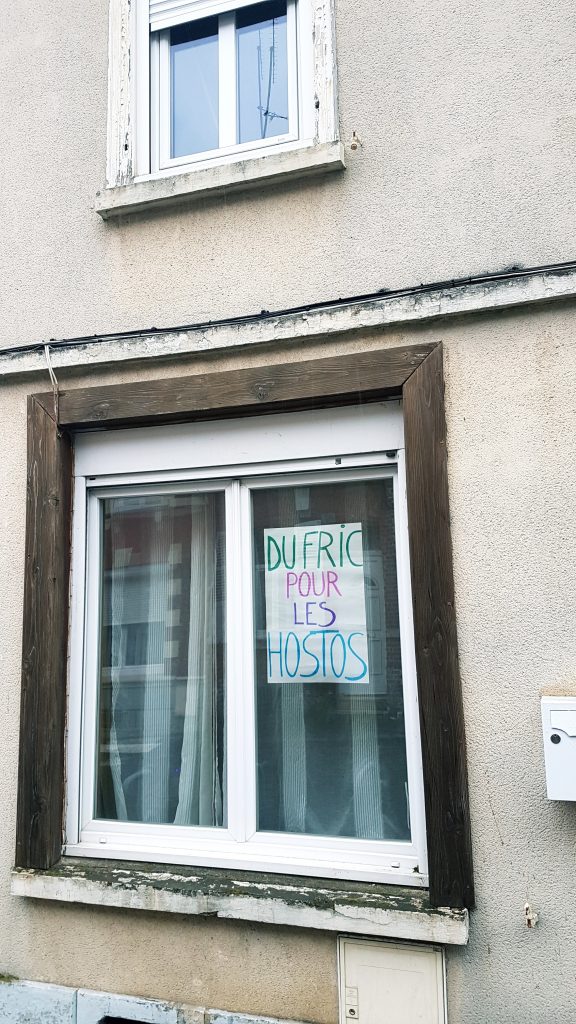 DU FRIC
POUR
LES
HOSTOS